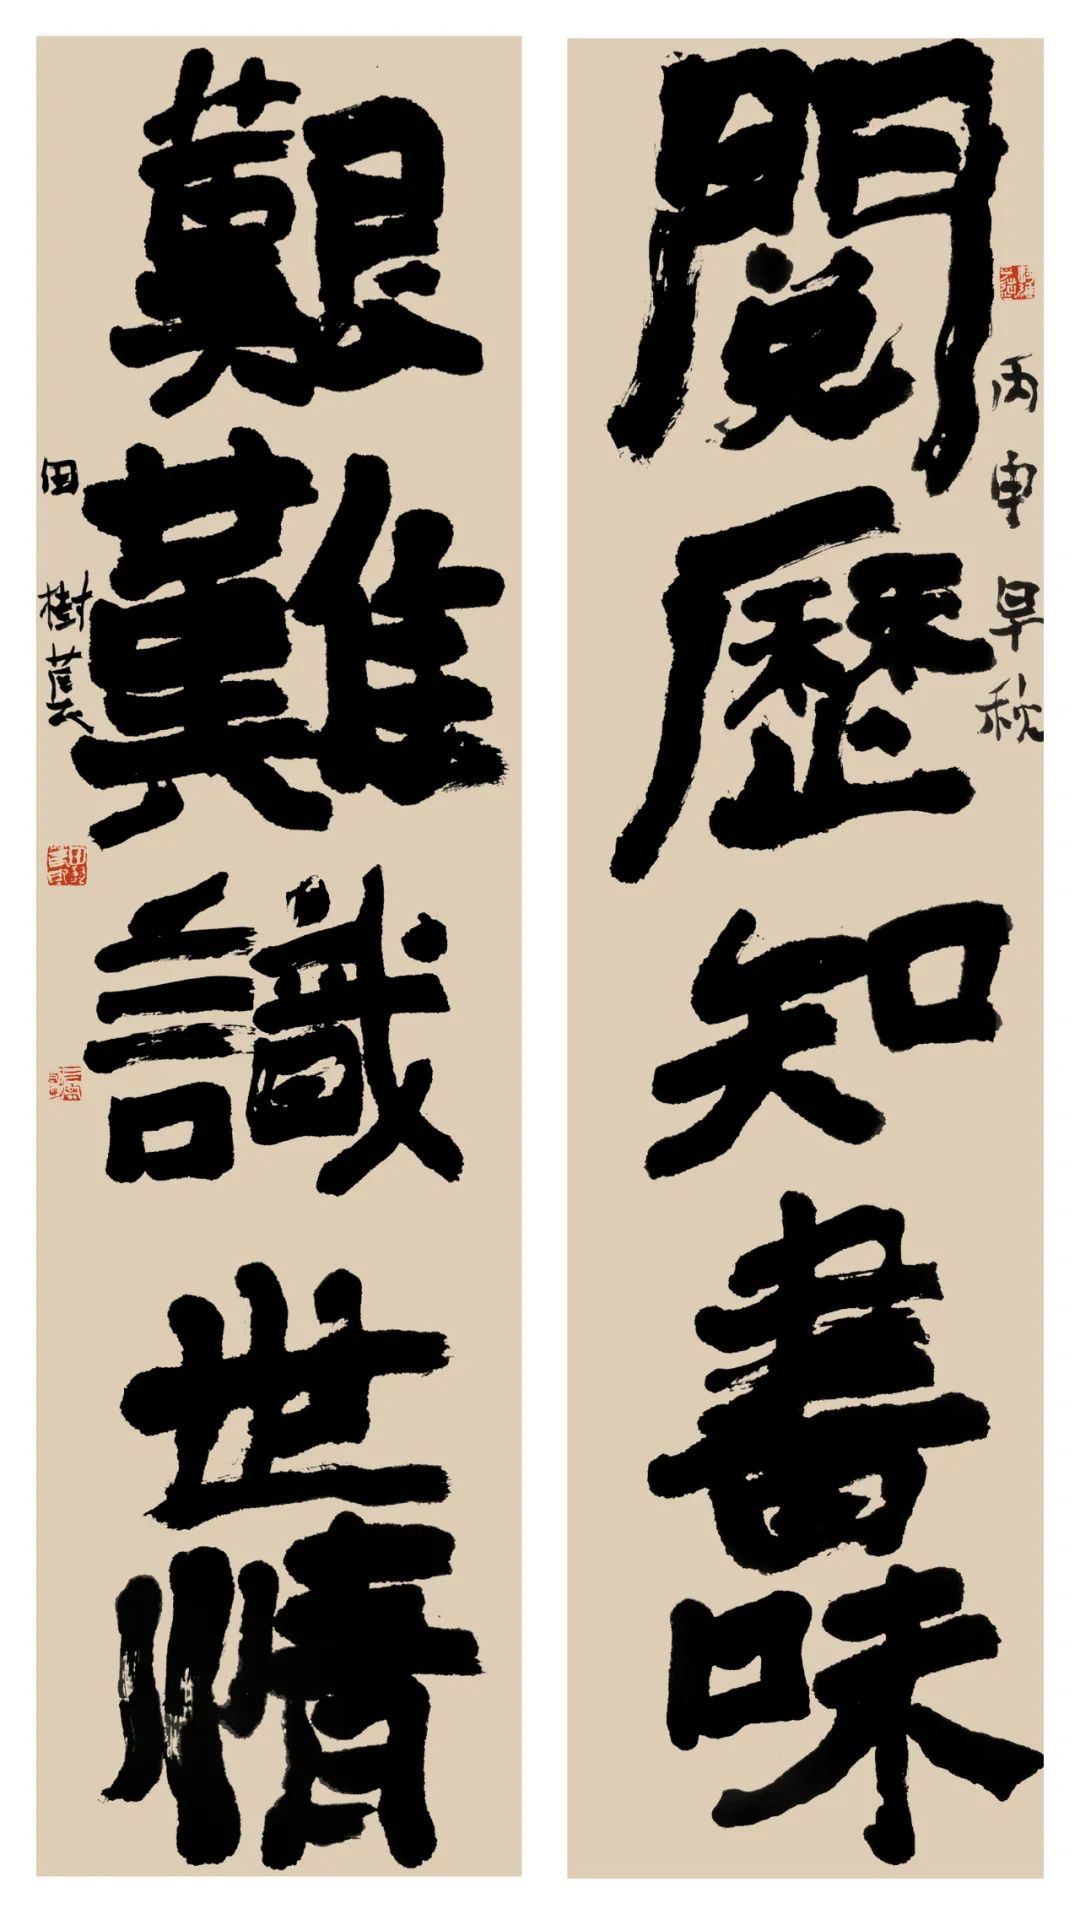 閱歷知書味
丙申早秋
艱難識世情
田樹萇